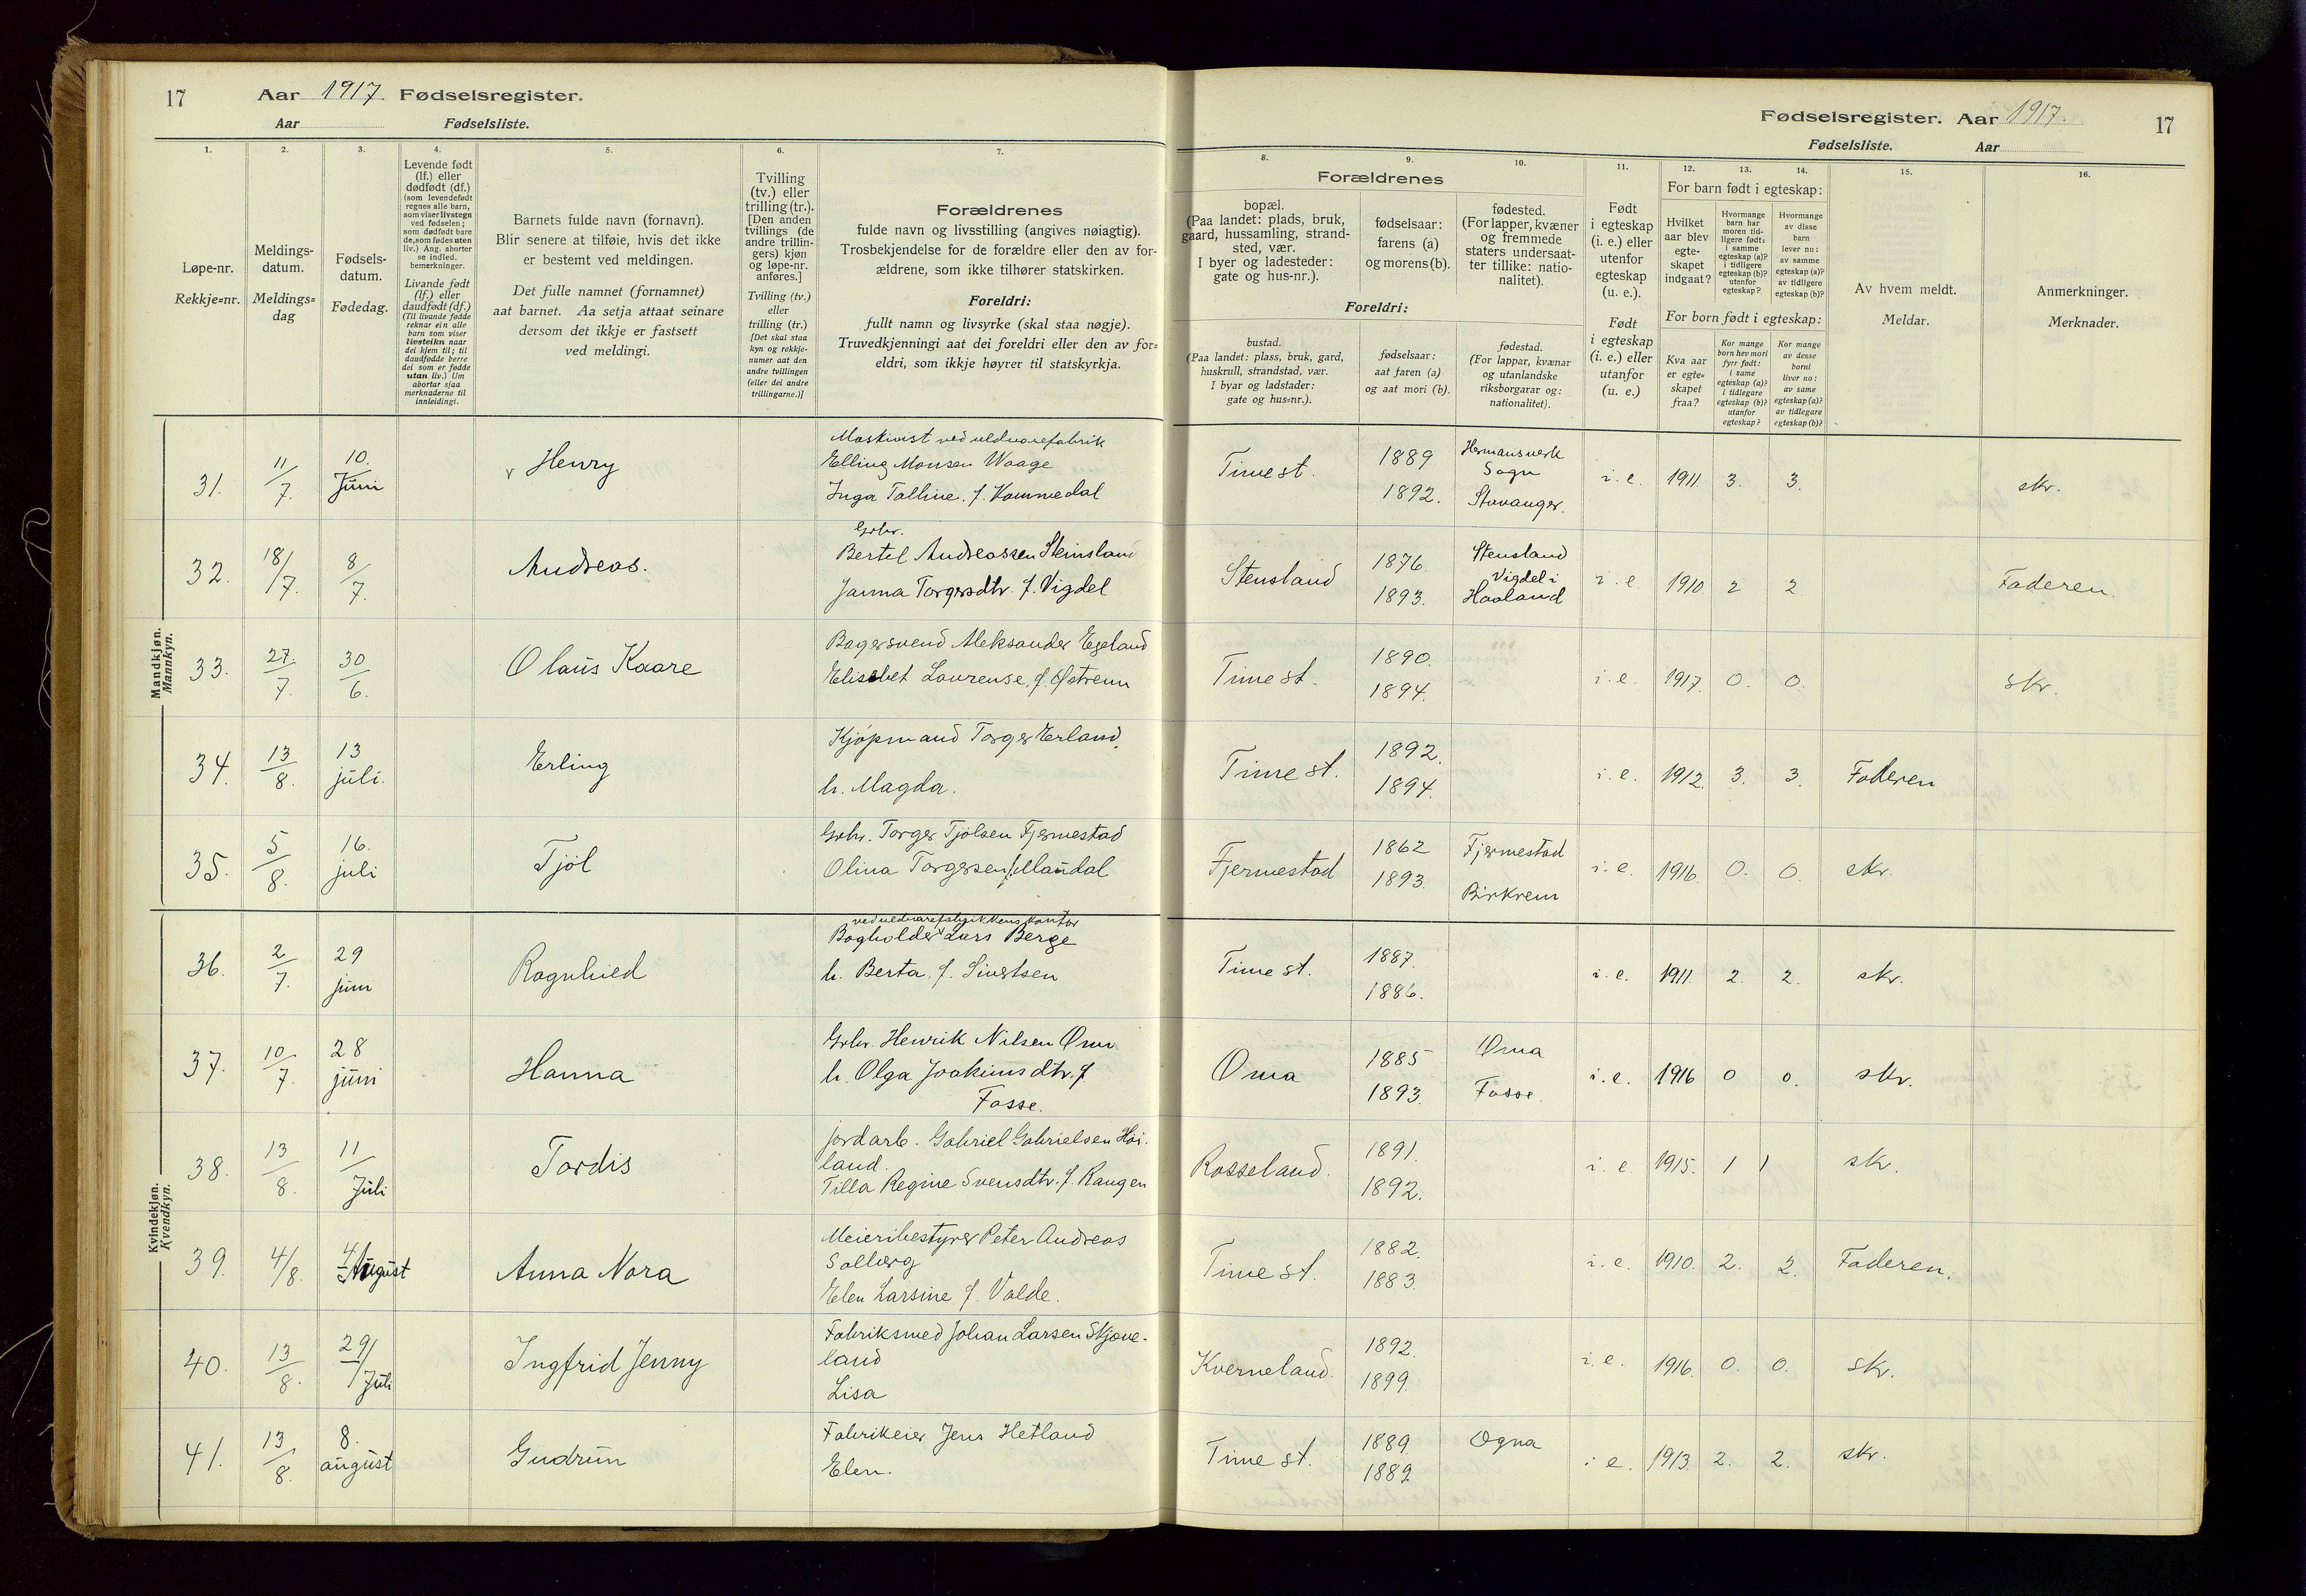 17 Aar 1917. Fødselsregister.
Aar Fødselsliste.
Fødselsregister. Aar 1917. 17
Fødselsliste. Aar
1. 2. 3. 4. 5. 6. 7.
Løpe-nr.
Rekkje=nr.
Meldings-
datum.
Meldings=
dag
Fødsels-
datum.
Fødedag.
Levende født
(lf.) eller
dødfødt (df.)
(som levendefødt
regnes alle barn,
som viser livstegn
ved fødselen;
som dødfødt bare
de, som fødes uten
liv.) Ang. aborter
se indled.
bemerkninger.
Livande født
(lf.) eller
daudfødt (df.)
(Til livande fødde
reknar ein alle
barn som viser
livsteikn naar
dei kjem til; til
daudfødde berre
dei som er fødde
utan liv.) Um
abortar sjaa
merknaderne til
innleidingi.
Barnets fulde navn (fornavn).
Blir senere at tilføie, hvis det ikke
er bestemt ved meldingen.
Det fulle namnet (fornamnet)
aat barnet. Aa setja attaat seinare
dersom det ikkje er fastsett
ved meldingi.
Tvilling
(tv.) eller
trilling (tr.).
[Den anden
tvillings (de
andre trillin-
gers) kjøn
og løpe-nr.
anføres.]
Tvilling (tv.)
eller
trilling (tr.)
[Det skal staa
kyn og rekkje-
numer aat den
andre tvillingen
(eller dei andre
trillingarne.)]
Forældrenes
fulde navn og livsstilling (angives nøiagtig).
Trosbekjendelse for de forældre eller den av for-
ældrene, som ikke tilhører statskirken.
Foreldri:
fullt namn og livsyrke (skal staa nøgje).
Truvedkjenningi aat dei foreldri eller den av for=
eldri, som ikkje høyrer til statskyrkja.
8. 9. 10. 11. 12. 13. 14. 15. 16.
Forældrenes
bopæl.
(Paa landet: plads, bruk,
gaard, hussamling, strand-
sted, vær.
I byer og ladesteder:
gate og hus-nr.).
fødselsaar:
farens (a)
og morens (b).
fødested.
(For lapper, kvæner
og fremmede
staters undersaat-
ter tillike: natio-
nalitet).
Foreldri:
bustad.
(Paa landet: plass, bruk, gard,
huskrull, strandstad, vær.
I byar og ladstader:
gate og hus=nr.).
fødselsaar:
aat faren (a)
og aat mori (b).
fødestad.
(For lappar, kvænar
og utanlandske
riksborgarar og:
nationalitet).
Født
i egteskap
(i. e.) eller
utenfor
egteskap
(u. e.).
Født
i egteskap
(i. e.) eller
utanfor
(u. e.)
For barn født i egteskap:
Hvilket
aar blev
egte-
skapet
indgaat?
Hvormange
barn har
moren tid-
ligere født:
i samme
egteskap (a)?
i tidligere
egteskap (b)?
utenfor
egteskap?
Hvormange
av disse
barn
lever nu:
av samme
egteskap (a)?
av tidligere
egteskap (b)?
For born født i egteskap:
Kva aar
er egte=
skapet
fraa?
Kor mange
born hev mori
fyrr født:
i same
egteskap (a)?
i tidlegare
egteskap (b)?
utanfor
egteskap?
Kor mange
av desse
borni
liver no:
av same
egteskap (a)?
av tidlegare
egteskap (b)?
Av hvem meldt.
Meldar.
Anmerkninger.
Merknader.
Mandkjøn.
Mannkyn.
31. 11/7. 10. Juni Henry
Maskinist ved uldvarefabrik
Elling Monsen Waage
Inga Talline, f. Kommedal
Time st. 1889 1892. Hermansverk
Sogn
Stavanger.
i. e. 1911. 3. 3. skr.
32. 18/7. 8/7. Andreas.
Grbr.
Bertel Andreassen Steinsland
Janna Torgersdtr. f. Vigdel
Stensland 1876. 1893. Stensland
Vigdel i
Haaland
i. e. 1910. 2 2 Faderen.
33. 27/7. 30/6. Olaus Kaare
Bagersvend Aleksander Egeland
Elisabet Laurense, f. Østrem
Time st. 1890. 1894.
i. e. 1917. 0. 0. skr.
34. 13/8. 13 juli. Erling
Kjøpmand Torger Erland.
h. Magda.
Time st. 1892. 1894.
i. e. 1912. 3. 3. Faderen
35. 5/8. 16. juli Tjøl
Grbr. Torger Tjølsen Fjermestad
Olina Torgersen f. Mandal
Fjermestad 1862 1893. Fjermestad
Birkrem
i. e. 1916. 0. 0. skr.
Kvindekjøn.
Kvendkyn.
36. 2/7. 29 juni Ragnhild
ved uldvarefabrikkens kontor
Bogholder Lars Berge
h. Berta f. Sivertsen
Time st. 1887. 1886.
i. e. 1911. 2. 2. skr.
37. 10/7. 28 juni Hanna
Grbr. Henrik Nilsen Oma
h. Olga Joakimsdtr. f.
Fosse.
Oma 1885 1893. Oma
Fosse.
i. e. 1916 0 0. skr.
38. 13/8. 11/Juli Tordis
jordarb. Gabriel Gabrielsen Høi-
land.
Tilla Regine Svensdtr. f. Haugen
Rosseland. 1891. 1892.
i. e. 1915. 1 1 skr.
39. 4/8. 4/August Anna Nora
Meieribestyrer Peter Andreas
Solberg
Elen Larsine f. Valde.
Time st. 1882. 1883.
i. e. 1910. 2. 2. Faderen.
40. 13/8. 29/Juli Ingfrid Jenny
Fabriksmed Johan Larsen Skjæve-
land
Lisa
Kverneland. 1892. 1899.
i. e. 1916. 0. 0. skr.
41. 13/8. 8. august Gudrun
Fabrikeier Jens Hetland
Elen.
Time st. 1889. 1889 Ogna
i. e. 1913. 2. 2. skr.